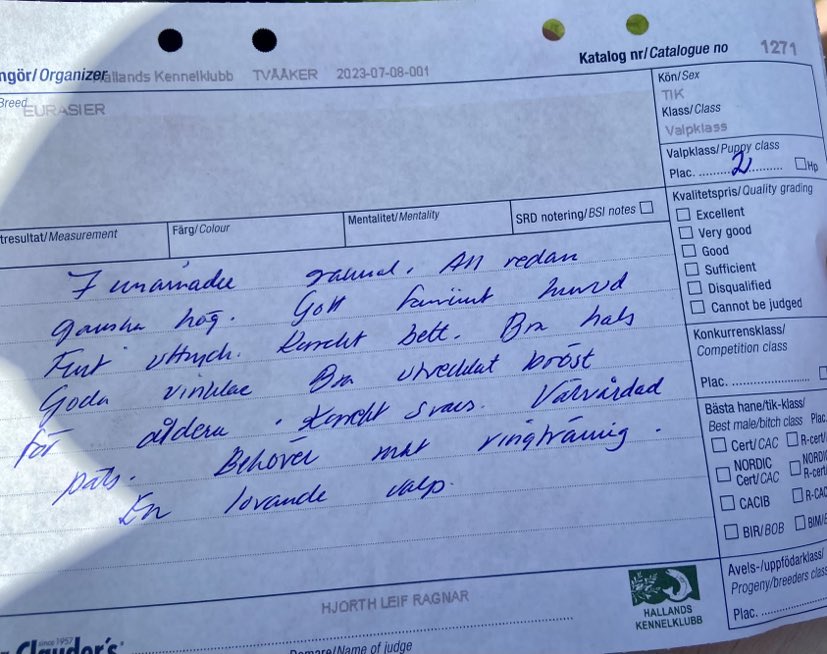 ngör/Organizer Hallands Kennelklubb TVÅÅKER 2023-07-08-001
Katalog nr/Catalogue no 1271
Breed
EURASIER
Kön/Sex
TIK
Klass/Class
Valpklass
Valpklass/Puppy class
Plac. 2 Hp
tresultat/Measurement
Färg/Colour
Mentalitet/Mentality
SRD notering/BSI notes
Kvalitetspris/Quality grading
Excellent
Very good
Good
Sufficient
Disqualified
Cannot be judged
Konkurrensklass/
Competition class
Plac.
Bästa hane/tik-klass/
Best male/bitch class Plac
Cert/CAC R-cert/
NORDIC Cert/CAC NORDIC R-cert/
CACIB R-CAC
BIR/BOB BIM/B
Avels-/uppfödarklass/
Progeny/breeders class
Plac.
7 månader gammal. All redan
ganska hög. Gott feminint huvud
Fint uttryck. Korrekt bett. Bra hals
Goda vinklar Bra utvecklat bröst
för åldern. Korrekt svans. Välvårdad
päls. Behöver mer ringträning.
En lovande valp.
HJORTH LEIF RAGNAR
Domare/Name of judge
since 1957
Clauder's
HALLANDS
KENNELKLUBB